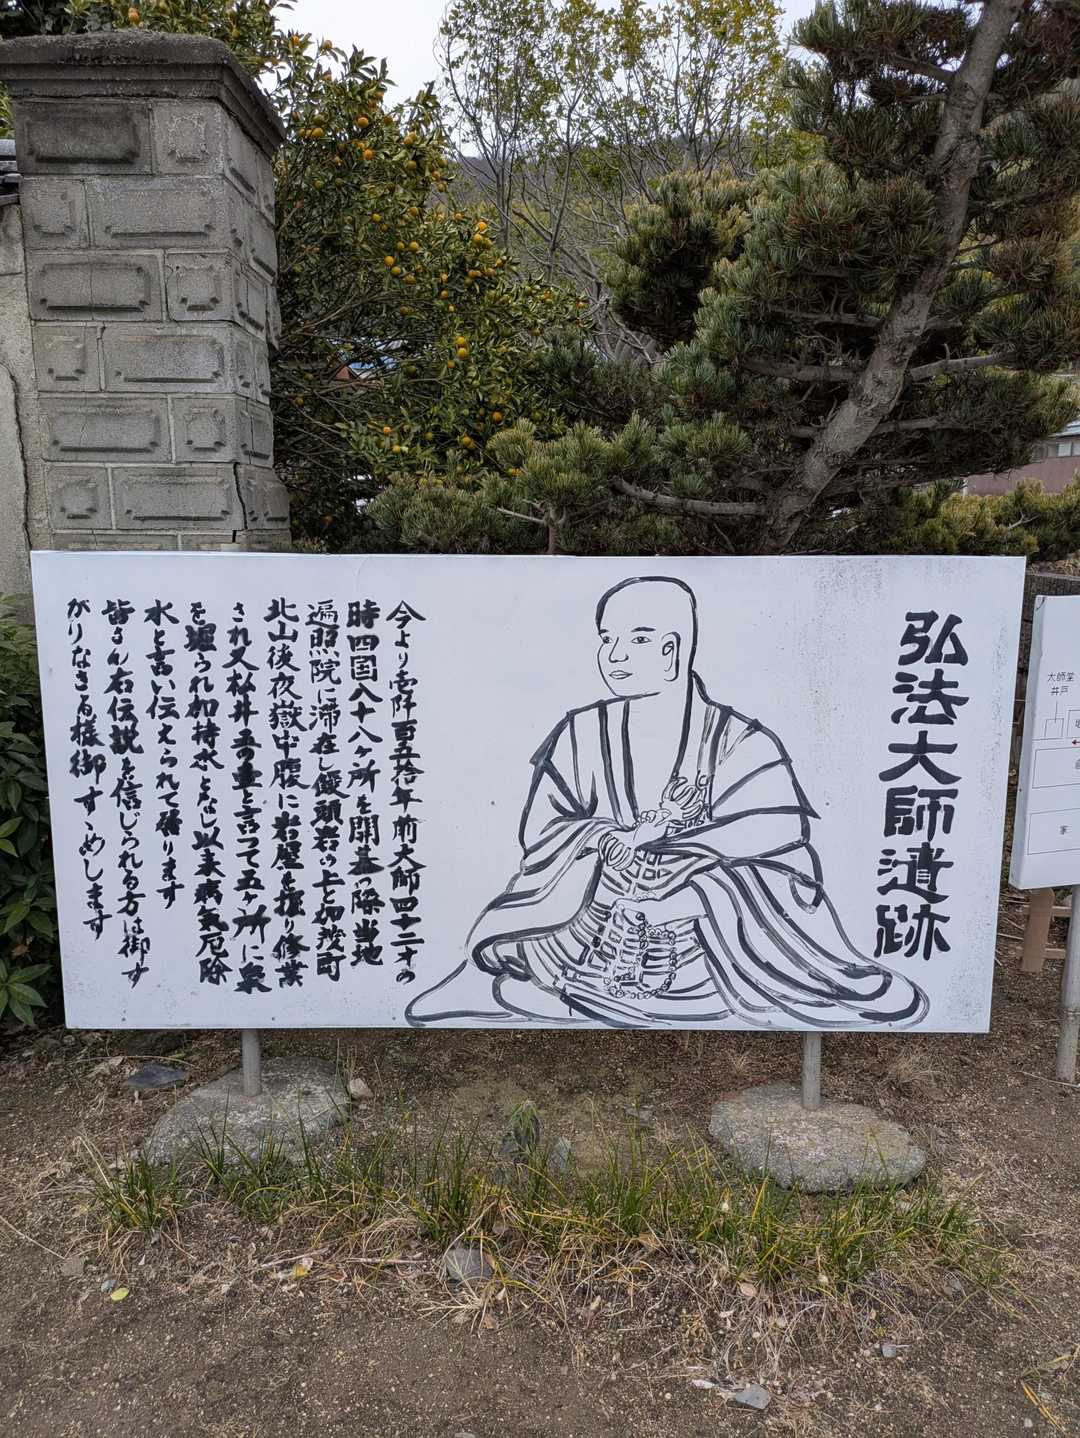 弘法大師遺跡
今より壱阡百五拾年前大師四十二才の
時四国八十八ヶ所を開基の際当地
遍照院に滞在し饅頭岩の上と加茂町
北山後夜獄中腹に岩屋を掘り修業
され又松井 の車と言つて五ヶ所に泉
を堀られ加持水となし以来病氣厄除
水と言い伝えられて居ります
皆さん右伝説を信じられる方は御す
がりなさる様御すゝめします
大師堂
井戸